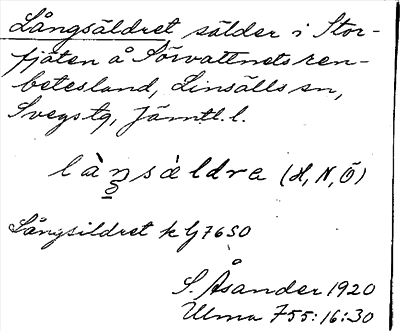 Långsäldret sälder i Stor-
fjäten å Sörvattnets ren-
betesland, Linsälls sn,
Svegs tg, Jämtl. l.
làŋsàldra (H, N, Ö)
Långsildret k G7650
S. Åsander 1920
Ulma 755:16:30